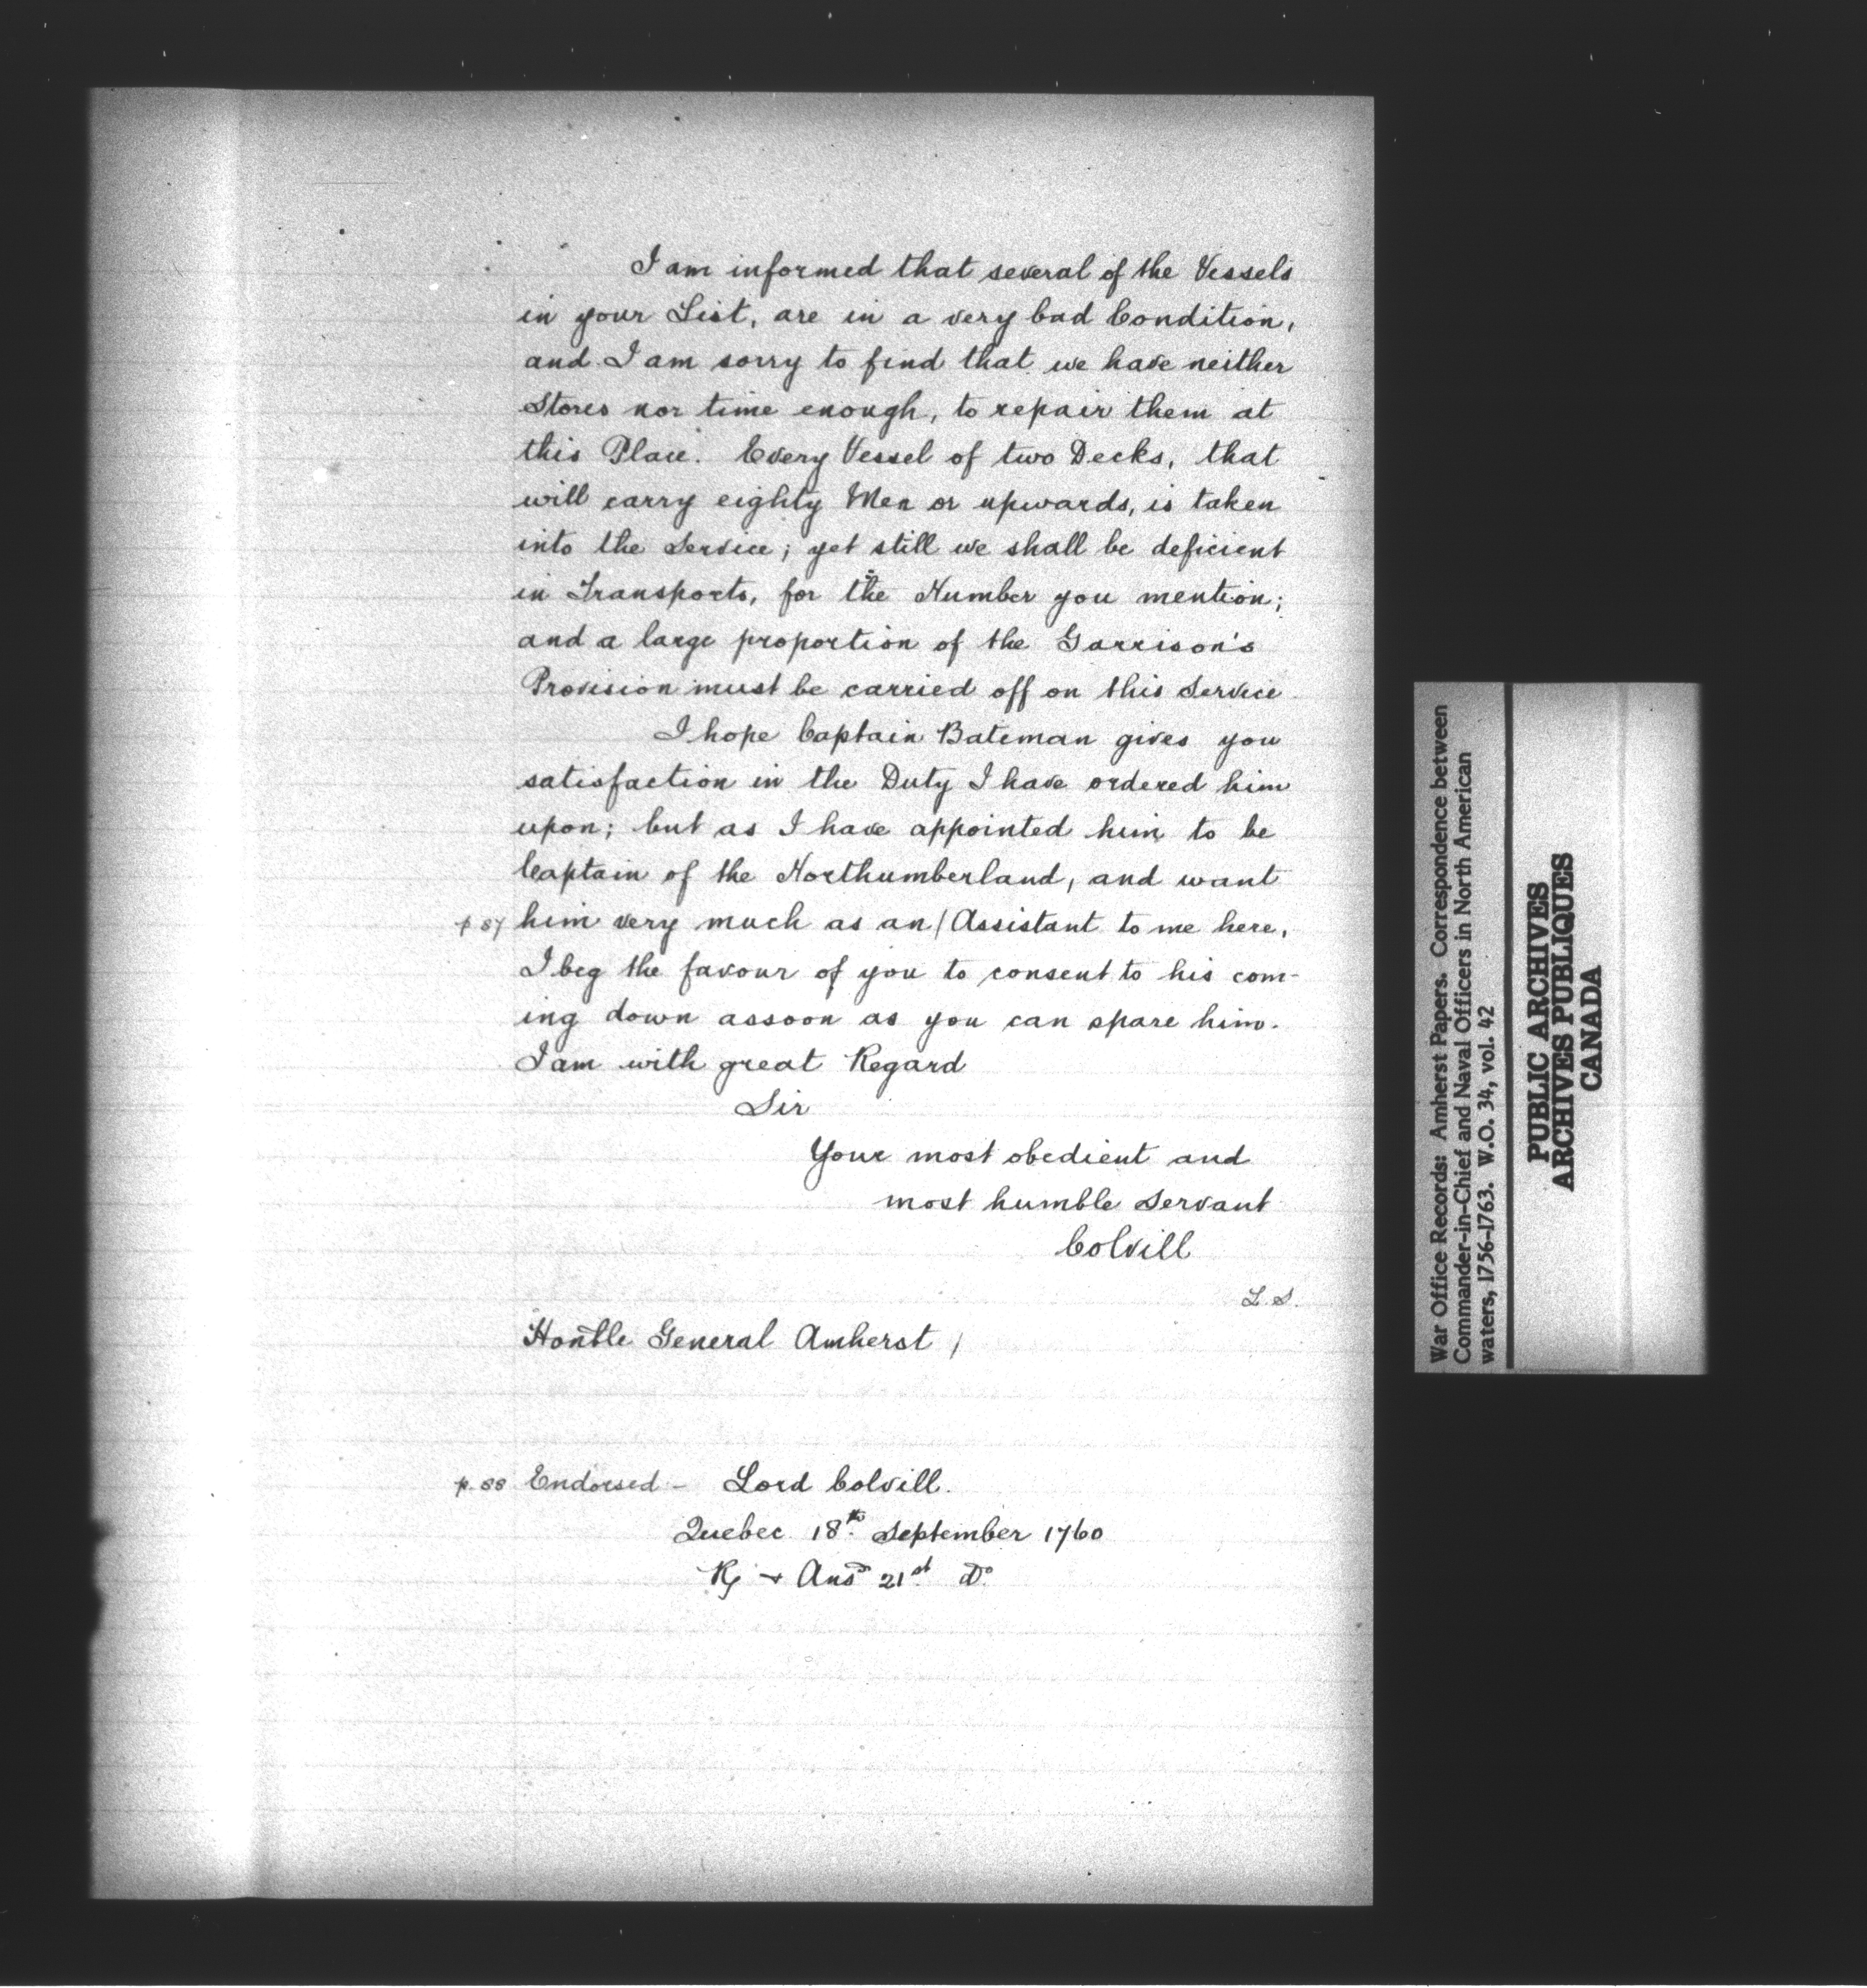 I am informed that several of the Vessels
in your List, are in a very bad Condition,
and I am sorry to find that we have neither
Stores nor time enough, to repair them at
this Place. Every Vessel of two Decks, that
will carry eighty Men or upwards, is taken
into the Service; yet still we shall be deficient
in Transports, for the Number you mention;
and a large proportion of the Garrison's
Provision must be carried off on this Service
I hope Captain Bateman gives you
satisfaction in the Duty I have ordered him
upon; but as I have appointed him to be
Captain of the Northumberland, and want
p 87 him very much as an / Assistant to me here,
I beg the favour of you to consent to his com-
ing down assoon as you can spare him.
I am with great Regard
Sir
Your most obedient and
most humble Servant
Colvill
L. S.
Honble General Amherst /
p. 88 Endorsed - Lord Colvill.
Quebec 18th September 1760
R & Ansd 21st Do
War Office Records: Amherst Papers. Correspondence between
Commander-in-Chief and Naval Officers in North American
waters, 1756-1763. W.O. 34, vol. 42
PUBLIC ARCHIVES
ARCHIVES PUBLIQUES
CANADA